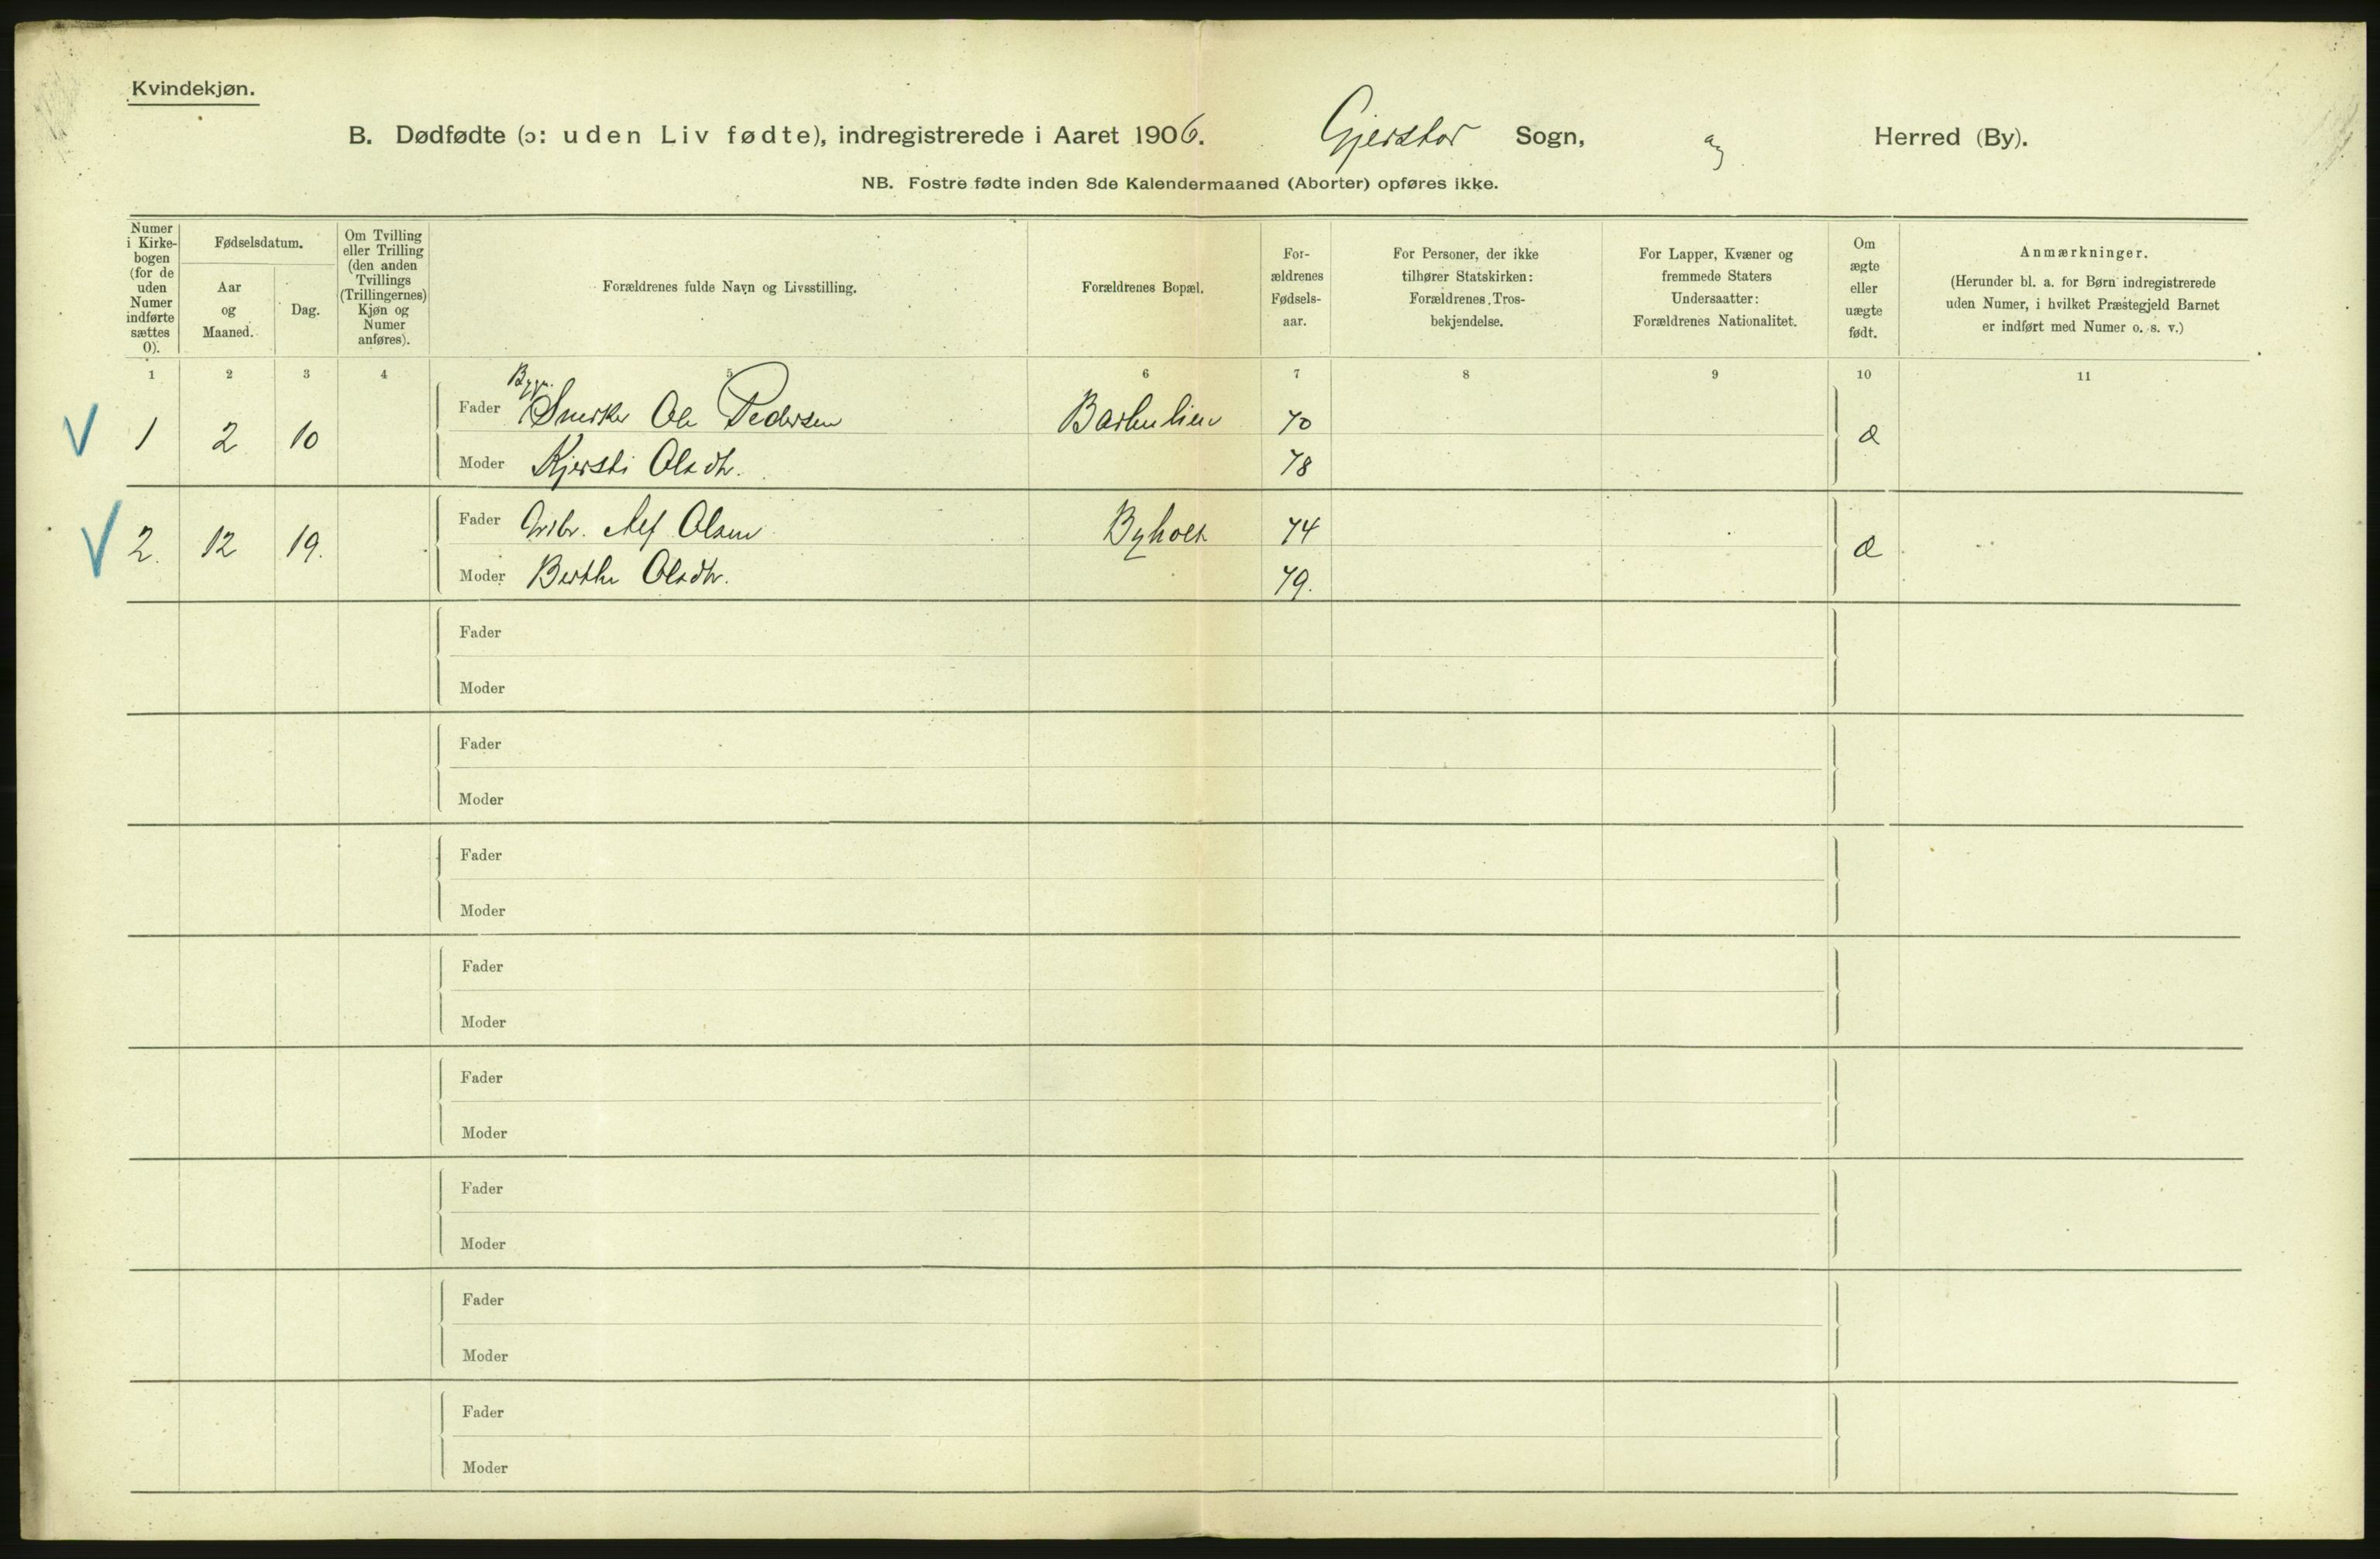 Kvindekjøn.
B. Dødfødte (ɔ: uden Liv fødte), indregistrerede i Aaret 1906. Gjerstad Sogn, og Herred (By).
NB. Fostre fødte inden 8de Kalendermaaned (Aborter) opføres ikke.
Numer i Kirke-bogen (for de uden Numer indførte sættes 0).
Fødselsdatum.
Aar og Maaned.
Dag.
Om Tvilling eller Trilling (den anden Tvillings (Trillingernes) Kjøn og Numer anføres).
Forældrenes fulde Navn og Livsstilling.
Forældrenes Bopæl.
For-ældrenes Fødsels-aar.
For Personer, der ikke tilhører Statskirken: Forældrenes Tros-bekjendelse.
For Lapper, Kvæner og fremmede Staters Undersaatter: Forældrenes Nationalitet.
Om ægte eller uægte født.
Anmærkninger.
(Herunder bl. a. for Børn indregistrerede uden Numer, i hvilket Præstegjeld Barnet er indført med Numer o. s. v.)
1 2 3 4 5 6 7 8 9 10 11
Bygn.
V 1 2 10 Fader Snerker Ole Pedersen 70 æ
Moder Kjersti Olsdtr. 78
V 2. 12 19. Fader Alf Olsen Byholt 74 æ
Moder Berthe Olsdtr. 79.
Fader
Moder
Fader
Moder
Fader
Moder
Fader
Moder
Fader
Moder
Fader
Moder
Fader
Moder
Fader
Moder